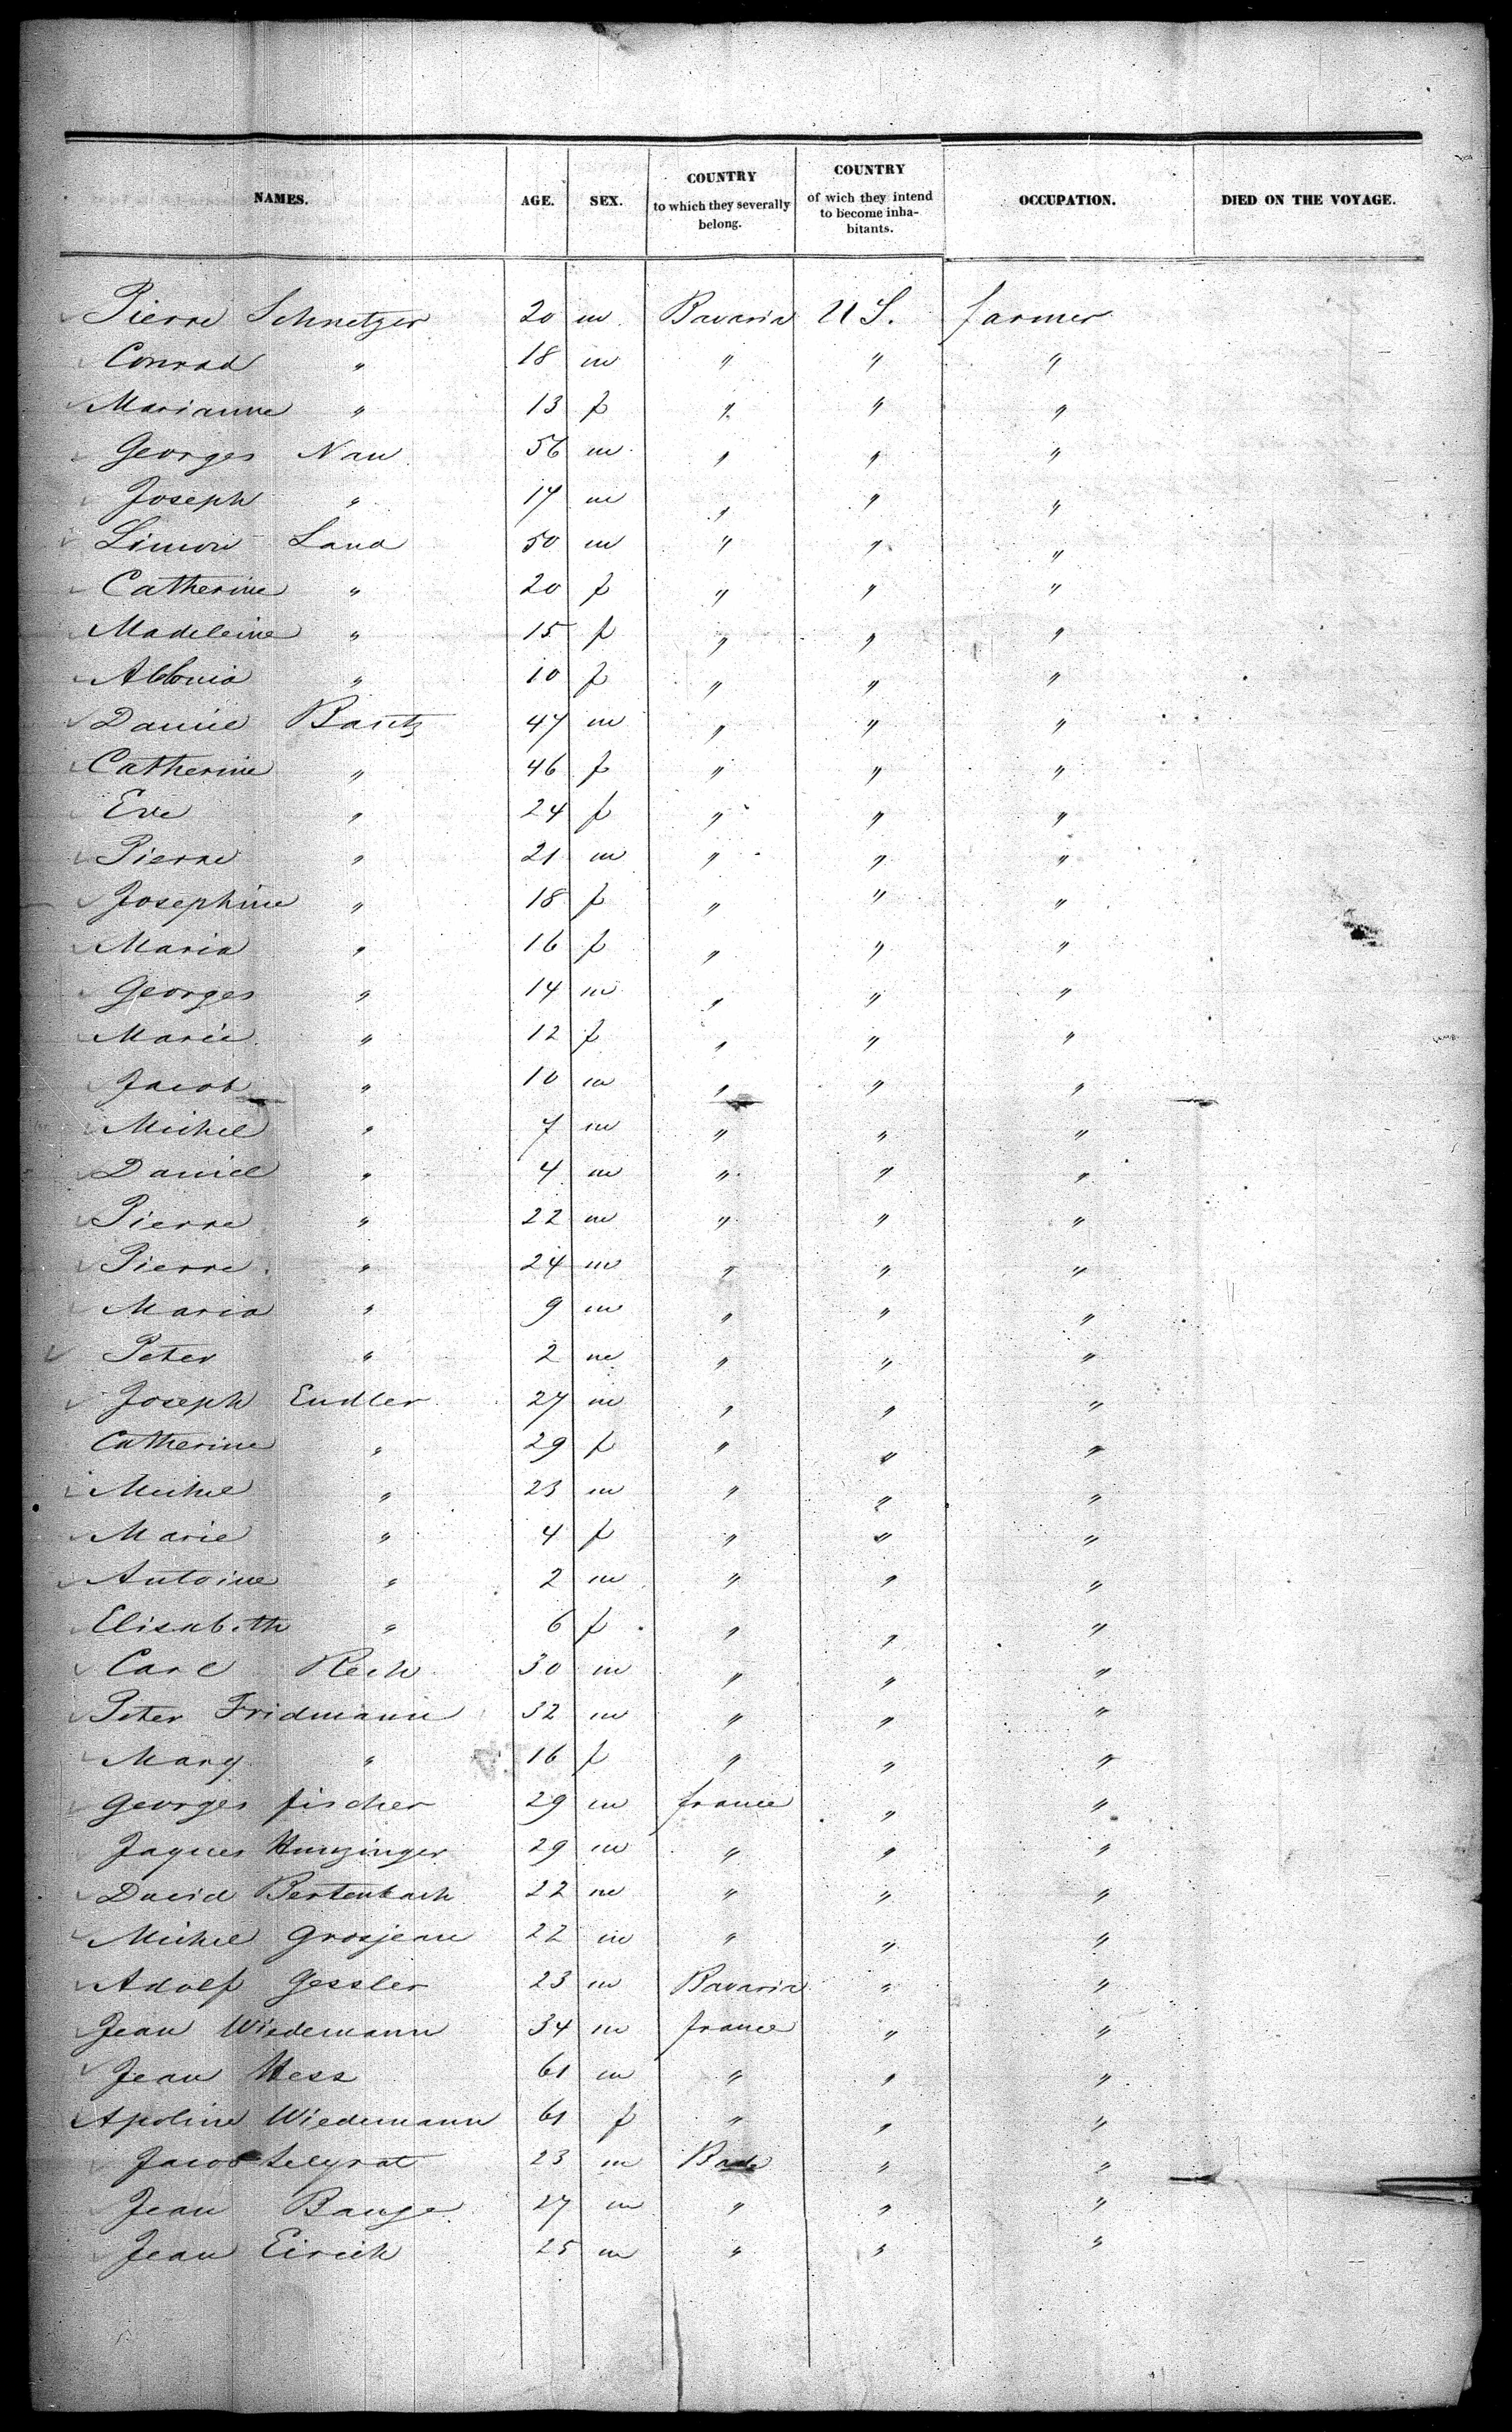 NAMES. AGE. SEX. COUNTRY to which they severally belong. COUNTRY of wich they intend to become inha- bitants. OCCUPATION. DIED ON THE VOYAGE.
Pierre Schnetzer 20 m Bavaria U S. farmer
Conrad " 18 m " " "
Marianne " 13 f " " "
Georges Nau 56 m " " "
Joseph " 17 m " " "
Simon Land 50 m " " "
Catherine " 20 f " " "
Madeleine " 15 f " " "
" 10 f " " "
Daniel Bartz 47 m " " "
Catherine " 46 f " " "
Eve " 24 f " " "
Pierre " 21 m " " "
Josephine " 18 f " " "
Maria " 16 f " " "
Georges " 14 m " " "
Marie " 12 f " " "
Jacob " 10 m " " "
Michel " 7 m " " "
Daniel " 4 m " " "
Pierre " 22 m " " "
Pierre " 24 m " " "
Maria " 9 m " " "
Peter " 2 m " " "
Joseph Endler 27 m " " "
Catherine " 29 f " " "
Michel " 23 m " " "
Marie " 4 f " " "
Antoine " 2 m " " "
Elisabeth " 6 f " " "
Carl Rech 30 m " " "
Peter Fridmann 32 m " " "
Mary " 16 f " " "
Georges fischer 29 m france " "
Jaques Hunzinger 29 m " " "
David Bertenbach 22 m " " "
Michel Grosjean 22 m " " "
Adolf Gessler 23 m Bavaria " "
Jean Wiedemann 34 m france " "
Jean Hess 61 m " " "
Apoline Wiedemann 61 f " " "
Jacob 23 m Bade " "
Jean Bauge 27 m " " "
Jean Eirich 25 m " " "